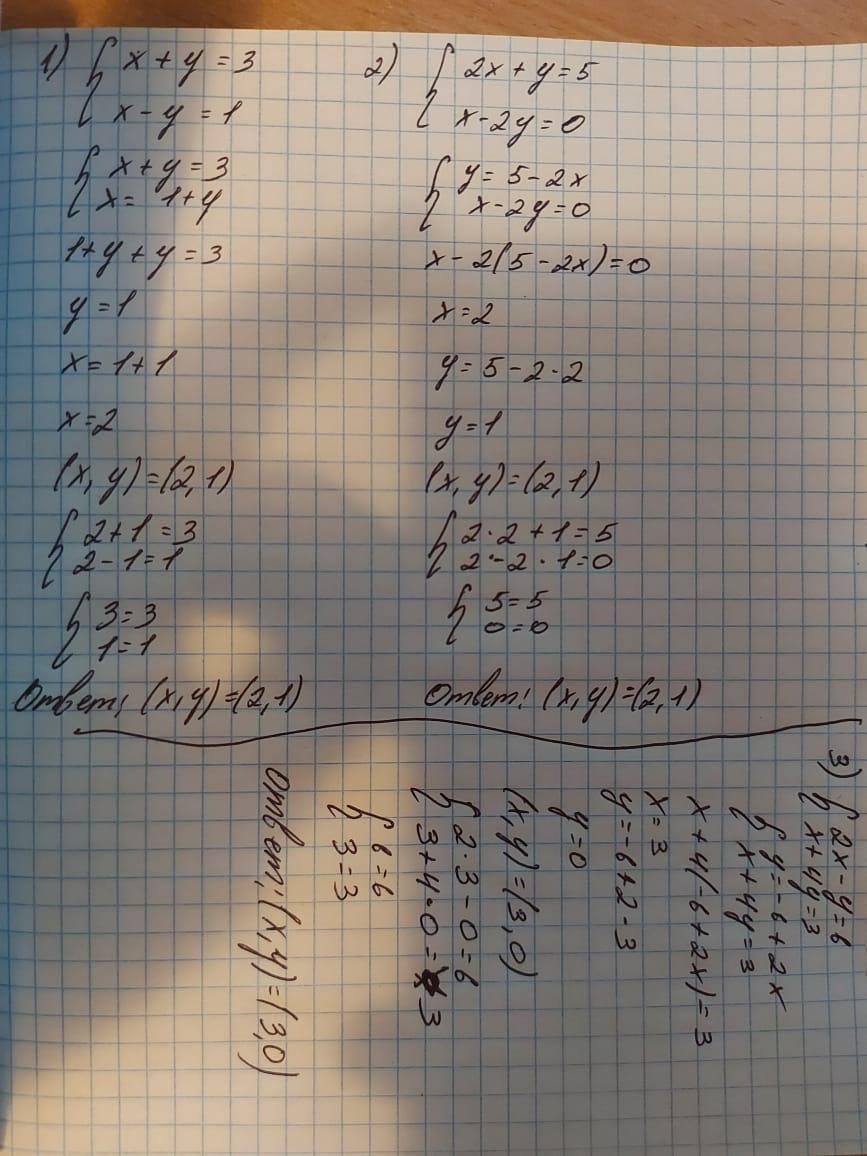 1) { x + y = 3
x - y = 1
{ x + y = 3
x = 1 + y
1 + y + y = 3
y = 1
x = 1 + 1
x = 2
(x, y) = (2, 1)
{ 2 + 1 = 3
2 - 1 = 1
{ 3 = 3
1 = 1
Ответ: (x, y) = (2, 1)
2) { 2x + y = 5
x - 2y = 0
{ y = 5 - 2x
x - 2y = 0
x - 2(5 - 2x) = 0
x = 2
y = 5 - 2 · 2
y = 1
(x, y) = (2, 1)
{ 2 · 2 + 1 = 5
2 - 2 · 1 = 0
{ 5 = 5
0 = 0
Ответ: (x, y) = (2, 1)
3) { 2x - y = 6
x + 4y = 3
{ y = -6 + 2x
x + 4y = 3
x + 4(-6 + 2x) = 3
x = 3
y = -6 + 2 · 3
y = 0
(x, y) = (3, 0)
{ 2 · 3 - 0 = 6
3 + 4 · 0 = 3
{ 6 = 6
3 = 3
Ответ: (x, y) = (3, 0)